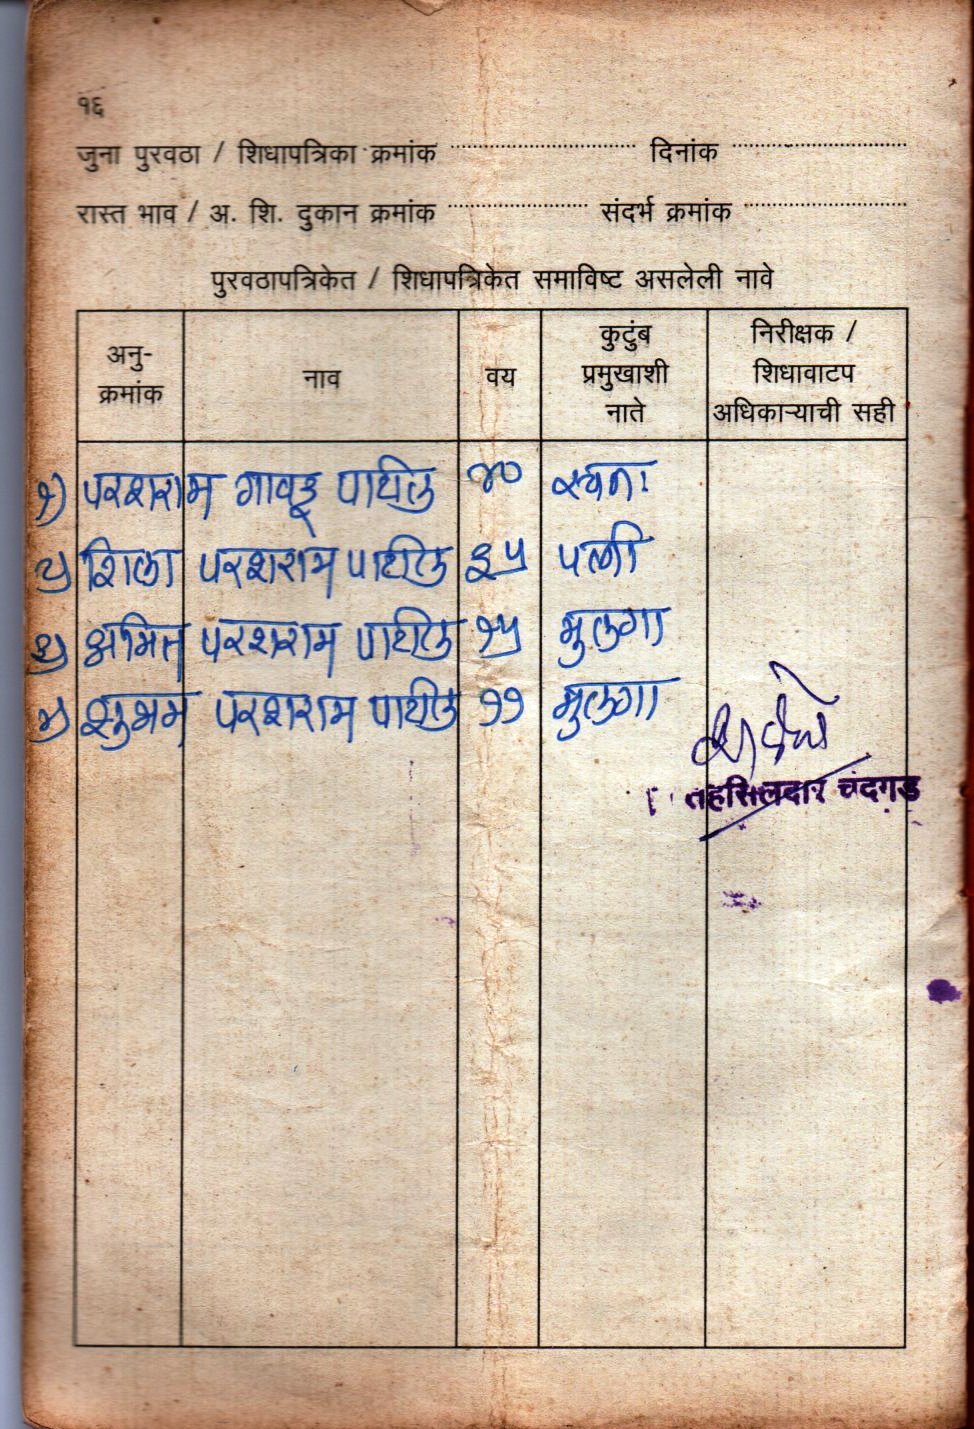 १६
जुना पुरवठा / शिधापत्रिका क्रमांक ........................ दिनांक ........................
रास्त भाव / अ. शि. दुकान क्रमांक ........................ संदर्भ क्रमांक ........................
पुरवठापत्रिकेत / शिधापत्रिकेत समाविष्ट असलेली नावे
अनु-
क्रमांक
नाव
वय
कुटुंब
प्रमुखाशी
नाते
निरीक्षक /
शिधावाटप
अधिकाऱ्याची सही
१) परशराम गावडू पाटील ४० स्वतः
२) शिला परशराम पाटील ३५ पत्नी
३) अमित परशराम पाटील १५ मुलगा
४) शुभम परशराम पाटील ११ मुलगा
तहसिलदार चंदगड